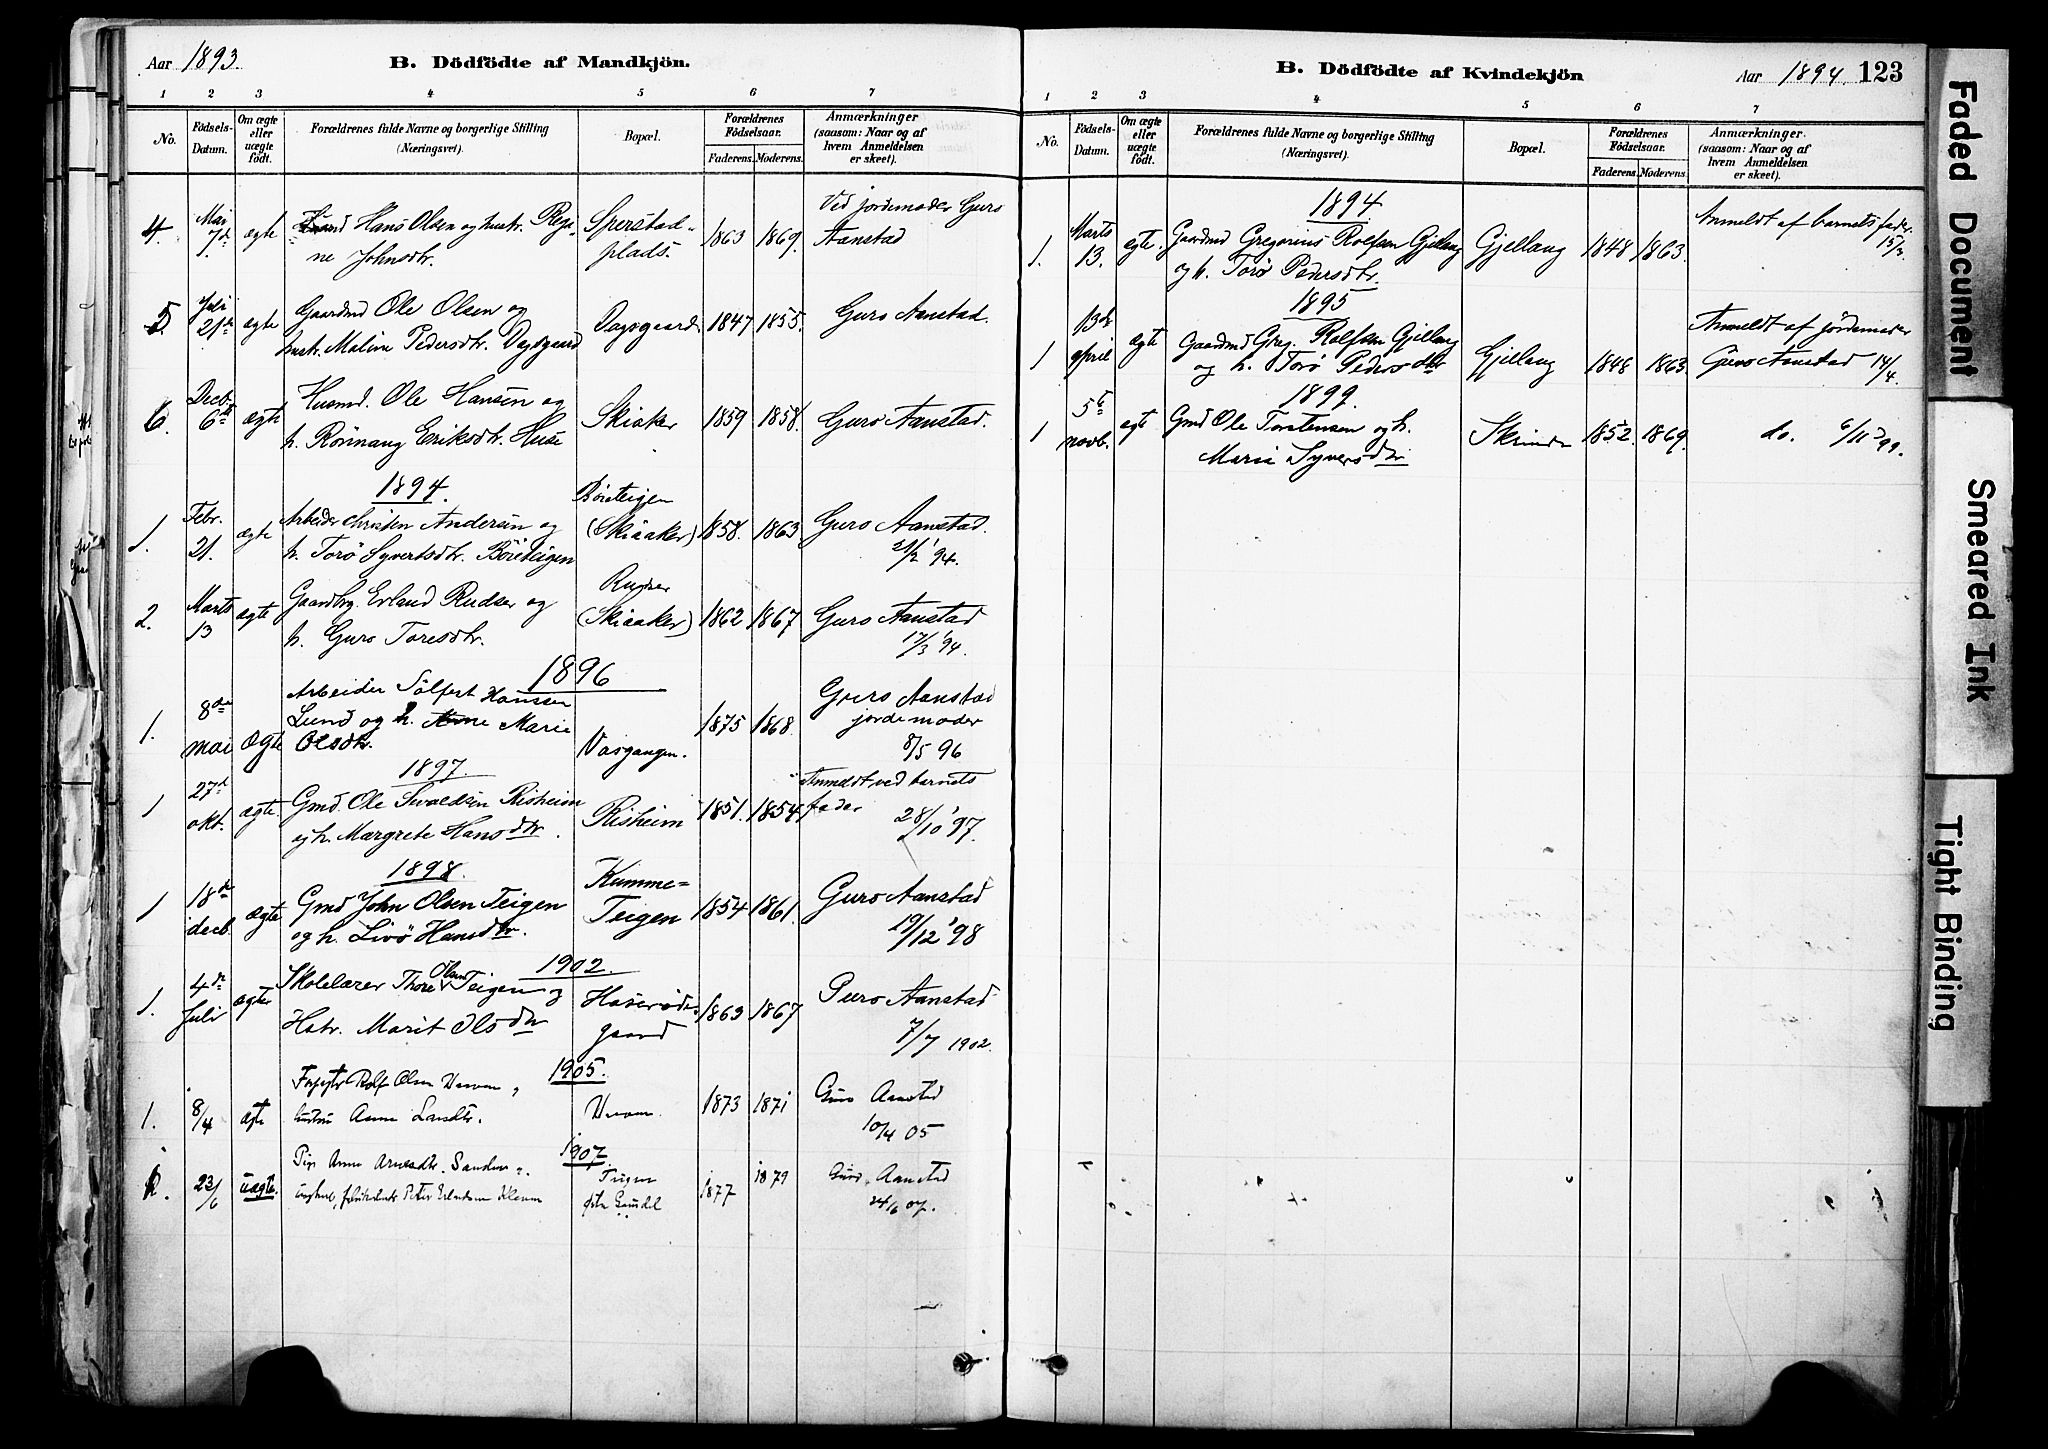 Aar 1893.
B. Dödfödte af Mandkjön.
1 2 3 4 5 6 7
No.
Födsels-Datum.
Om ægte eller uægte födt.
Forældrenes fulde Navne og borgerlige Stilling (Næringsvei).
Bopæl.
Forældrenes Födselsaar.
Faderens. Moderens.
Anmærkninger (saasom: Naar og af hvem Anmeldelsen er skeet).
4. Mai 7de ægte Hans Olsen og hustr. Regi-
ne Johnsdtr.
Sperstad-
plads.
1863 1869.
Ved jordemoder Guro
Aanstad
5. Juli 21de ægte Gaardmd Ole Olsen og
hustr. Maline Pedersdtr. Dagsgaard
Dagsgaard 1847 1855. Guro Aanstad.
6. Decb. 6te ægte Husmd. Ole Hansen og
h. Rønnaug Eriksdtr. Huse
Skiaker 1859 1858. Guro Aanstad.
1894.
1. Febr. 21. ægte Arbeider Christen Andersen og
h. Torö Syvertsdtr. Böreteigen
Böreteigen
(Skiaaker) 1858. 1863 Guro Aanstad.
21/2 '94.
2. Marts 13 ægte Gaardbrg. Erland Rudser og
h. Guro Toresdtr.
Rudser
(Skiaaker) 1862 1867 Guro Aanstad
17/3 '94.
1896
1. 8de mai Ægte Arbeider Sölfest Hanssen
Lund og h. Anne Marie
Olsdtr.
Vasgangen. 1875 1868.
Guro Aanstad
jordemoder
8/5 96
1897.
1 27d okt. ægte. Gmd. Ole Sivaldsen Risheim
og h. Margrete Hansdtr.
Risheim 1851. 1854.
Anmeldt ved barnets
fader 28/10 '97.
1898.
1 18de decb. ægte Gmd John Olsen Teigen
og h. Livö Hansdtr.
Kumme=
Teigen 1854 1861. Guro Aanstad
19/12 '98
1902.
1. 4de Juli ægte Skolelærer Thore Olsen Teigen og
Hstr. Marit Olsdtr
gaard
1863 1867 Guro Aanstad
7/7 1902.
1905.
1. 8/4 ægte Rolf Olsen
hustru Anne
1873 1871 Guro Aanstad
10/4 05
1907.
23/6 uægte. Pige Anne
Peter Erlandsen
Teigen
1877 1879 Guro Aanstad
24/6 07.
B. Dödfödte af Kvindekjön
Aar 1894. 123
1 2 3 4 5 6 7
No.
Födsels-Datum.
Om ægte eller uægte födt.
Forældrenes fulde Navne og borgerlige Stilling (Næringsvei).
Bopæl.
Forældrenes Födselsaar.
Faderens. Moderens.
Anmærkninger. (saasom: Naar og af hvem Anmeldelsen er skeet).
1894
1. Marts 13. ægte. Gaardmd Gregorius Rolfsen Gjellang
og h. Torö Pedersdtr.
Gjellang 1848 1863.
Anmeldt af barnets fader.
15/3.
1895
1 13de april ægte Gaardmd Greg. Rolfsen Gjellang
og h. Torö Pedersdtr
Gjellang 1848 1863.
Anmeldt af jördemoder
Guro Aanstad 14/4.
1899.
1 5te novb. ægte Gmd Ole Torstensen og h.
Marie Syversdtr
1852. 1869. do. 6/11 99.
Faded Document
Smeared Ink
Tight Binding